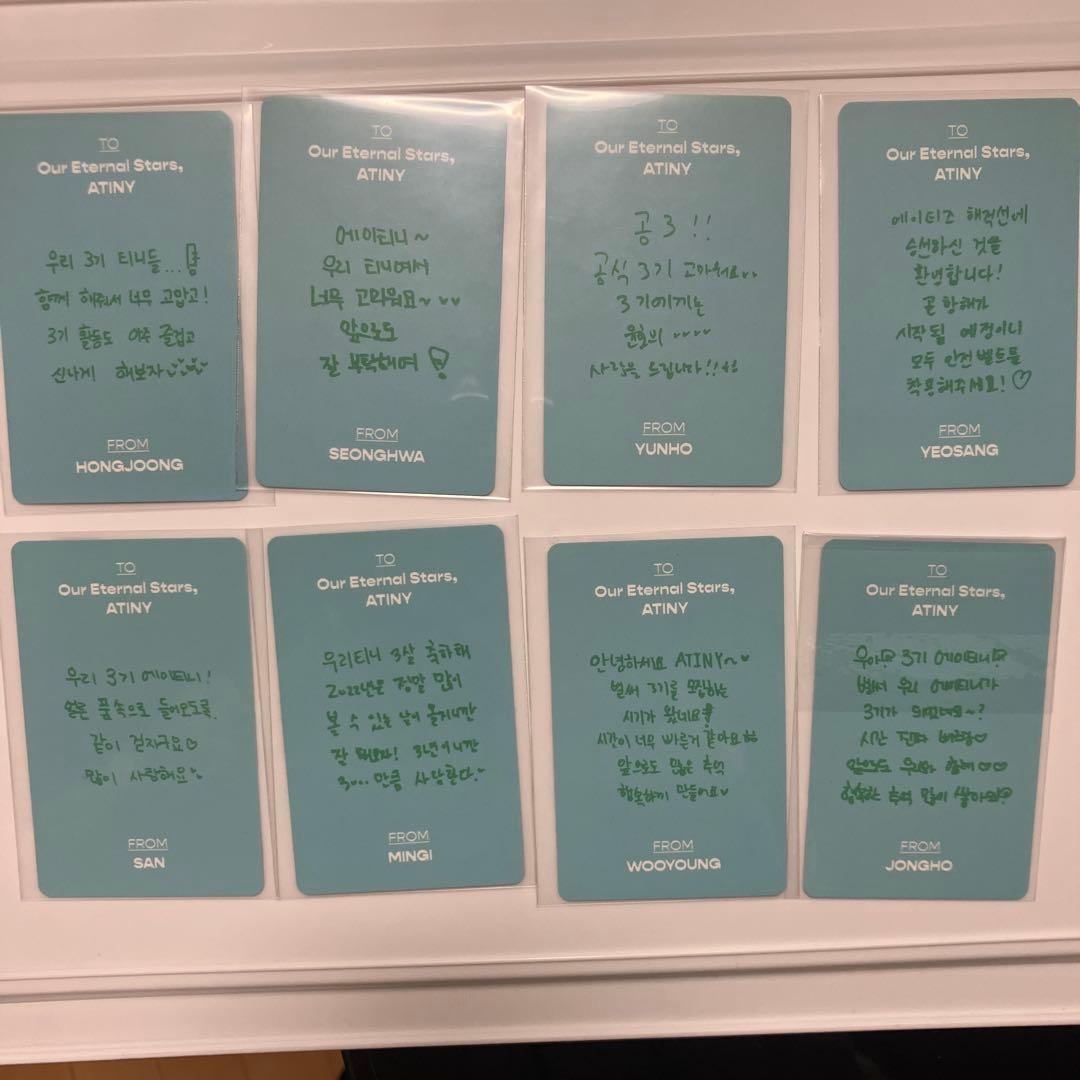 TO
Our Eternal Stars,
ATINY
우리 3기 티니들...
함께 해줘서 너무 고맙고!
3기 활동도 아주 즐겁고
신나게 해보자
FROM
HONGJOONG
TO
Our Eternal Stars,
ATINY
에이티니~
우리 티니여서
너무 고마워요~
앞으로도
잘 부탁해여
FROM
SEONGHWA
TO
Our Eternal Stars,
ATINY
공 3!!
공식 3기 고마워요..
3기에게는
윤호의
사랑을 드립니다!!
FROM
YUNHO
TO
Our Eternal Stars,
ATINY
에이티즈 해적선에
승선하신 것을
환영합니다!
곧 항해가
시작될 예정이니
모두 안전벨트를
착용해주세요!♡
FROM
YEOSANG
TO
Our Eternal Stars,
ATINY
우리 3기 에이티니!
얼른 품속으로 들어오도록
같이 걷자구요♡
많이 사랑해요
FROM
SAN
TO
Our Eternal Stars,
ATINY
우리티니 3살 축하해
2022년은 정말 많이
볼 수 있는 날이 올거니깐
잘 3년이니깐
3000만큼 사랑한다.
FROM
MINGI
TO
Our Eternal Stars,
ATINY
안녕하세요 ATINY~♥
벌써 3기를 모집하는
시기가 왔네요
시간이 너무 빠른거 같아요
앞으로도 많은 추억
행복하게 만들어요♥
FROM
WOOYOUNG
TO
Our Eternal Stars,
ATINY
우와 3기 에이티니!
벌써 우리 에이티니가
3기가 되었네요~?
시간 진짜 빠르당♡
앞으로도 우리와 함께♡♡
행복한 추억 많이 쌓아요!
FROM
JONGHO